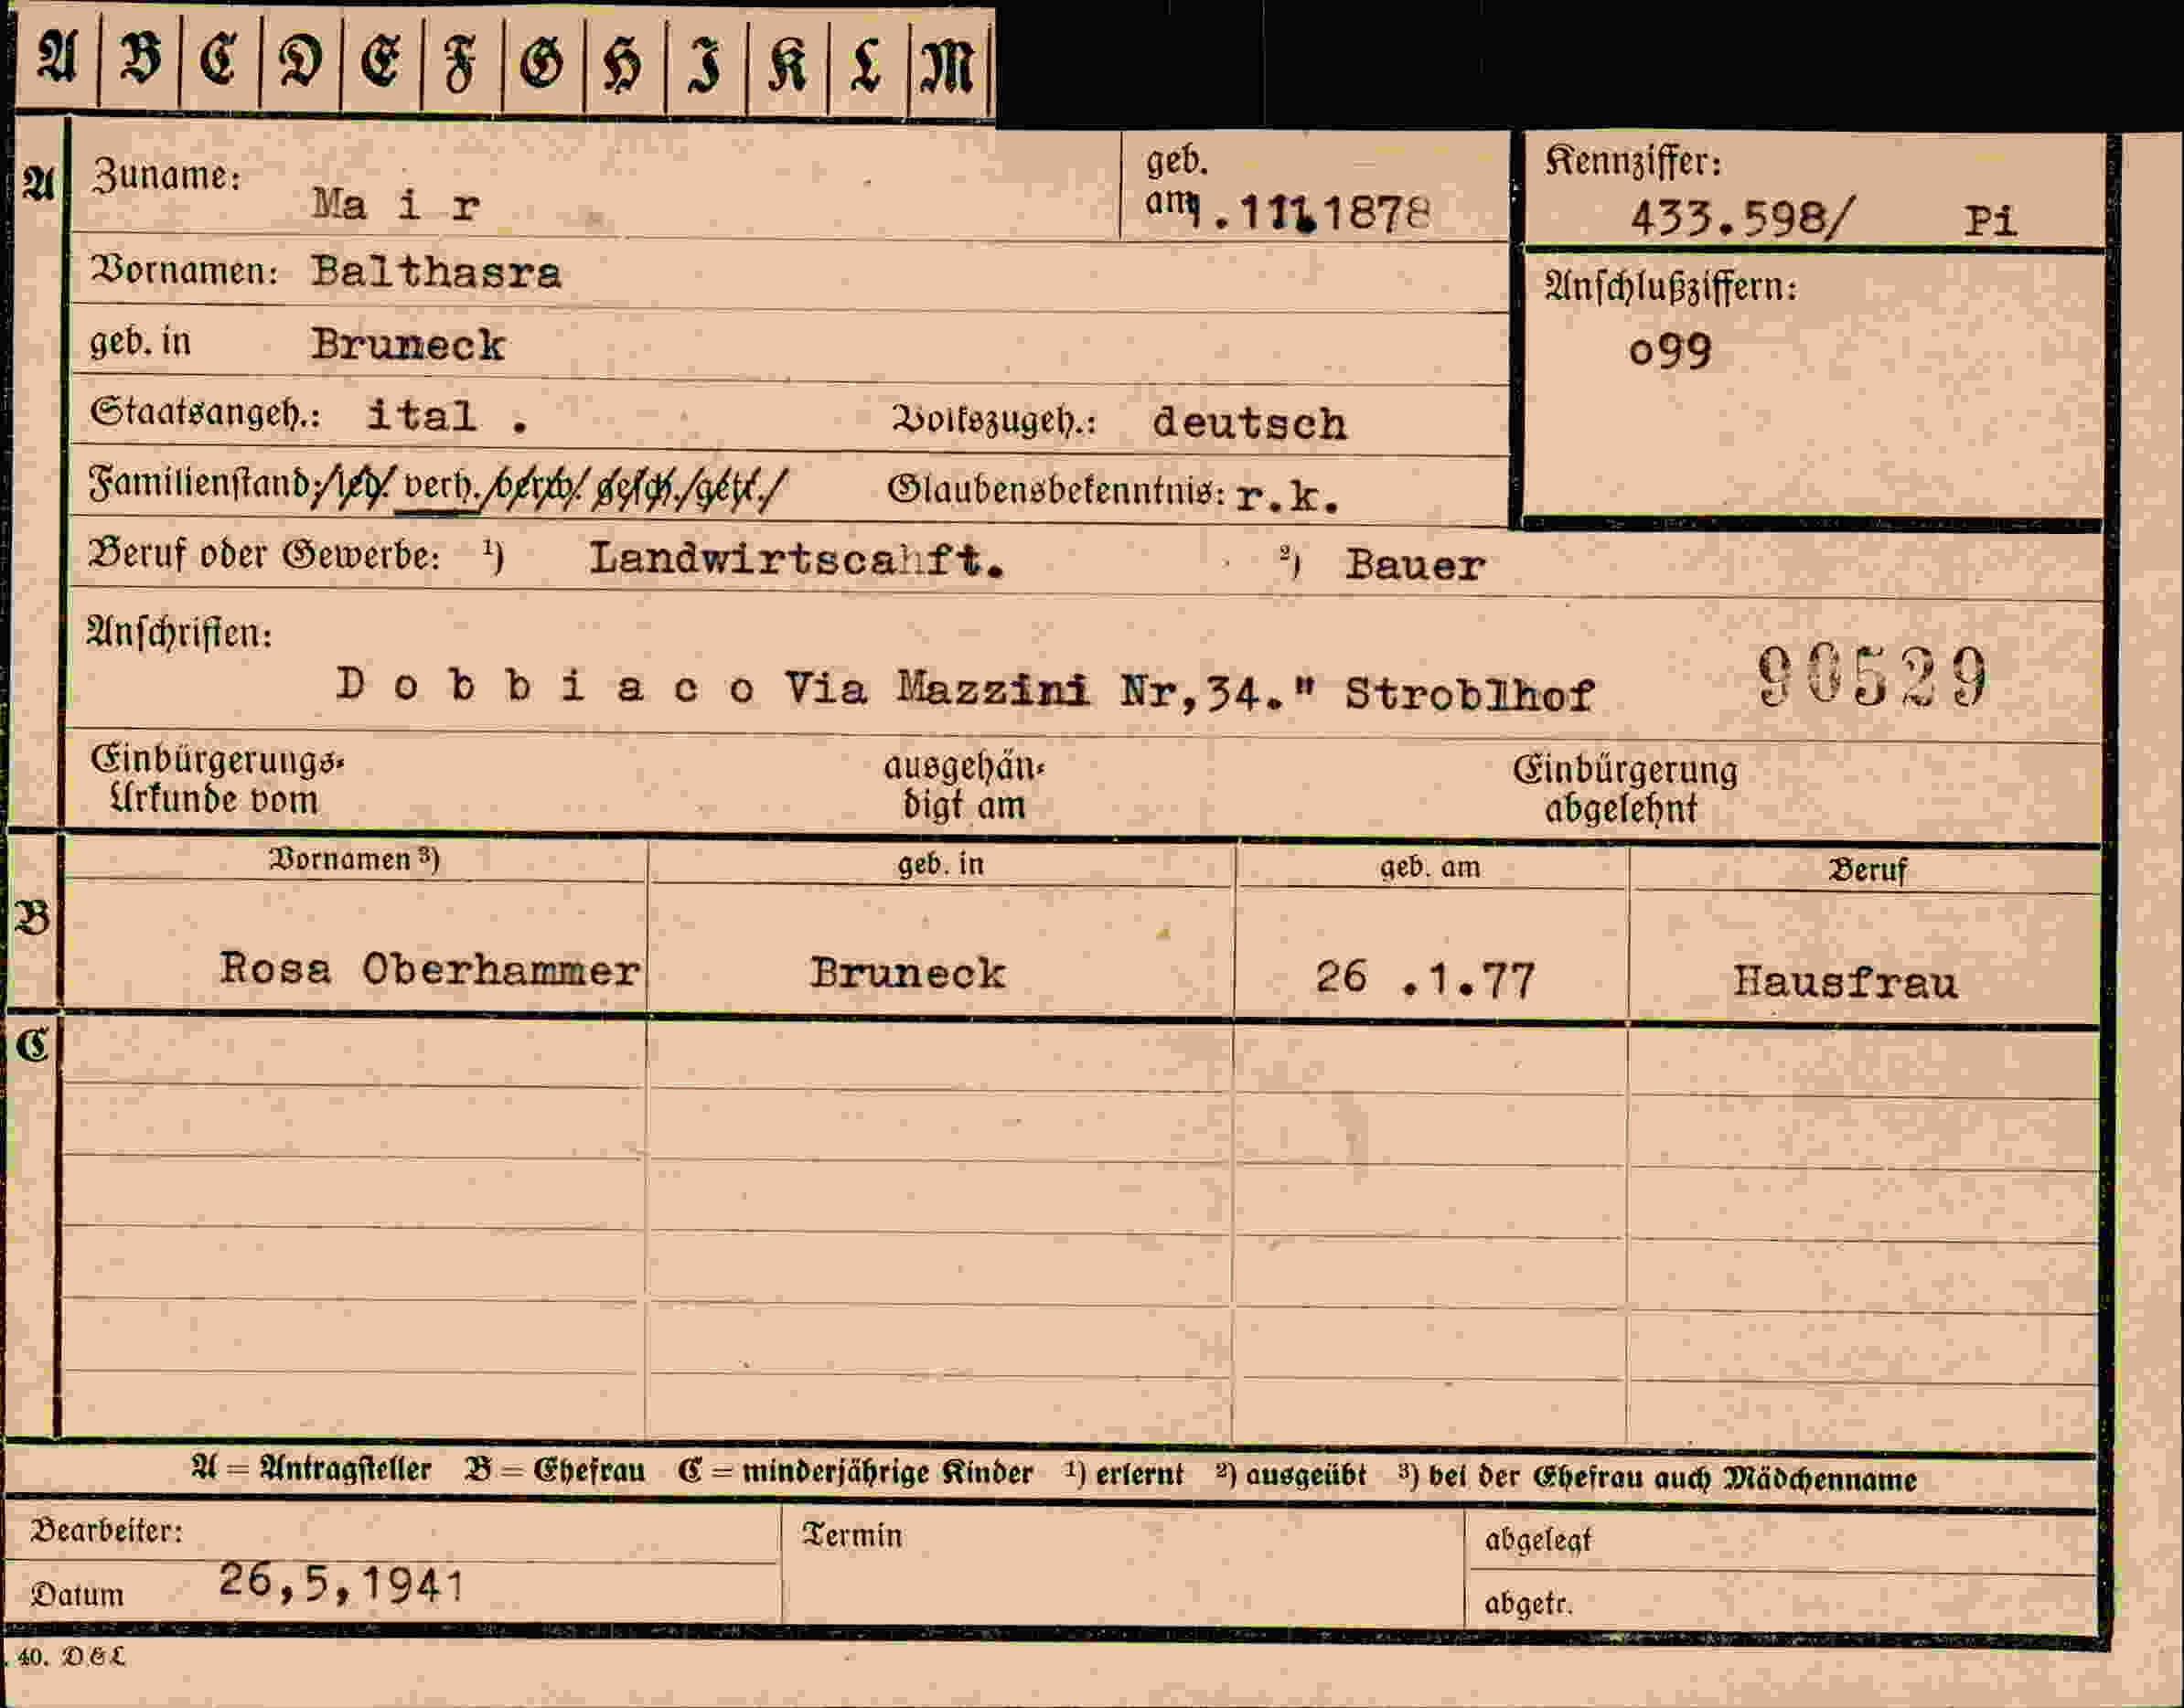 A B C D E F G H I K L M
A
Zuname: Ma i r
geb. am .1878
Kennziffer: 433.598/ Pi
Vornamen: Balthasra
Anschlußziffern:
o99
geb. in Bruneck
Staatsangeh.: ital . Volkszugeh.: deutsch
Familienstand: led. verh. verw. gesch. getr. Glaubensbekenntnis: r.k.
Beruf oder Gewerbe: ¹) Landwirtscahft. ²) Bauer
Anschriften:
D o b b i a c o Via Mazzini Nr,34." Stroblhof 90529
Einbürgerungs-Urkunde vom ausgehändigt am Einbürgerung abgelehnt
Vornamen ³) geb. in geb. am Beruf
B
Rosa Oberhammer Bruneck 26 .1.77 Hausfrau
C
A = Antragsteller B = Ehefrau C = minderjährige Kinder ¹) erlernt ²) ausgeübt ³) bei der Ehefrau auch Mädchenname
Bearbeiter: Termin abgelegt
Datum 26,5,1941 abgetr.
40. D&L